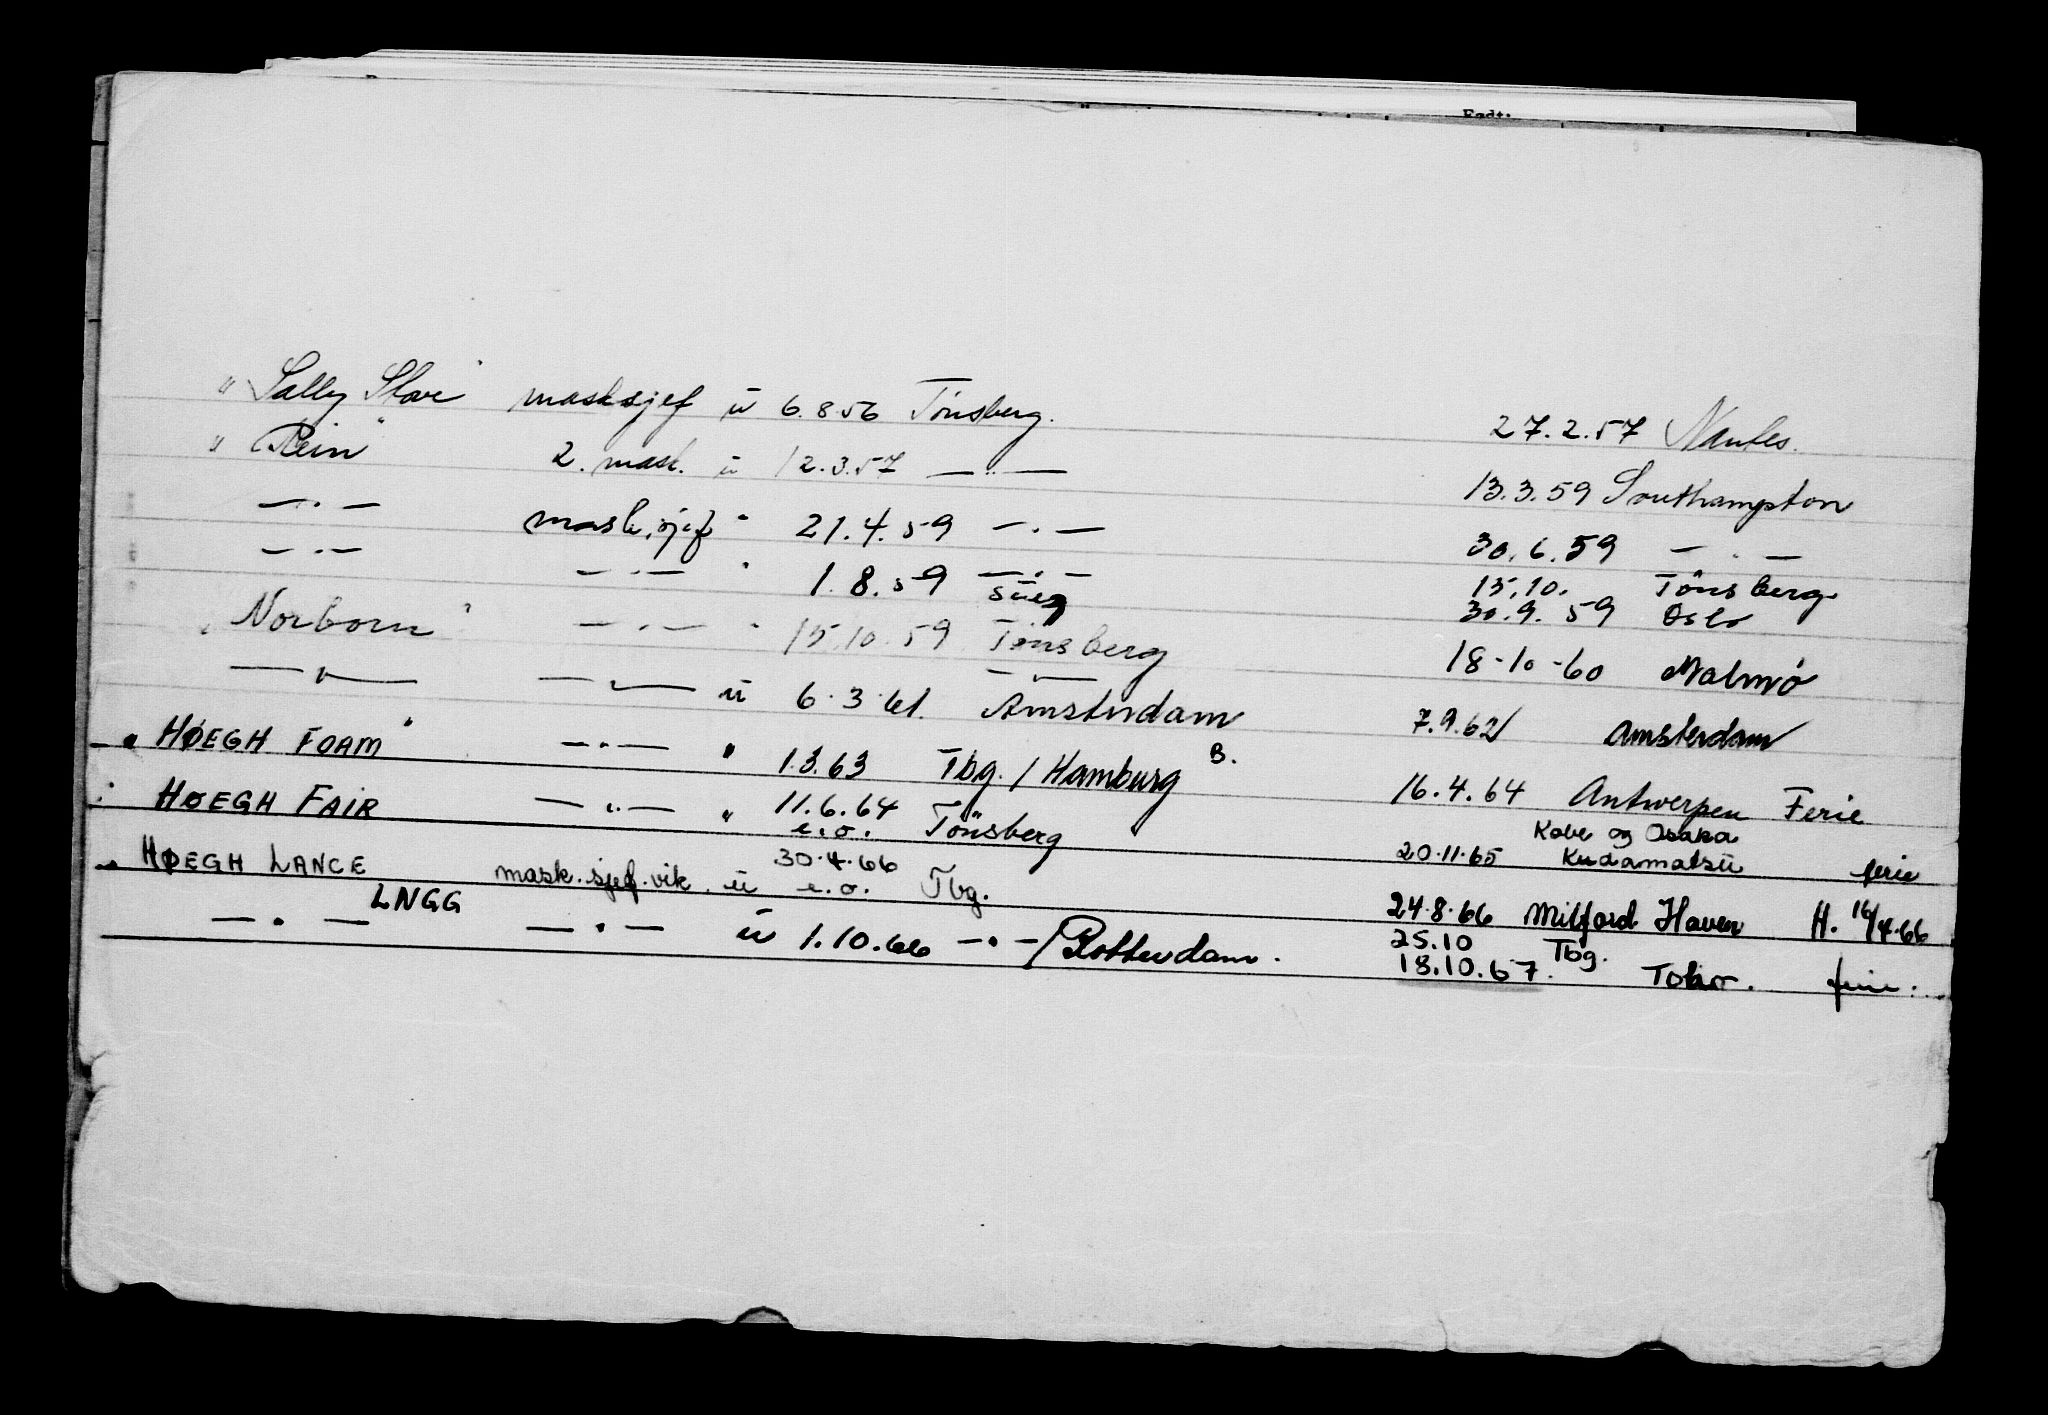 Født:
"Sally Stove" mask.sjef u 6.8.56 Tönsberg. 27.2.57 Nantes.
"Rein" 2. mask. u 12.3.57 — " — 13.3.59 Southampton
— " — mask.sjef " 21.4.59 — " — 30.6.59 — " —
— " — — " — " 1.8.59 — " — 15.10. Tönsberg
Suez 30.9.59 Oslo
"Norborn" — " — " 15.10.59 Tönsberg 18-10-60 Malmö
— " — — " — u 6.3.61. Amsterdam 7.9.62 Amsterdam
"HØEGH FOAM" — " — " 1.3.63 Tbg. / Hamburg B. 16.4.64 Antwerpen Ferie
" HØEGH FAIR — " — " 11.6.64 Kobe og Osaka
e.o. Tönsberg 20.11.65 Kudamatsu ferie
" HØEGH LANCE mask.sjef.vik. u 30.4.66 e.o. Tbg. 24.8.66 Milford Haven H. 16/4.66
LNGG 25.10 Tbg.
— " — — " — u 1.10.66 — " — / Rotterdam. 18.10.67. ferie.